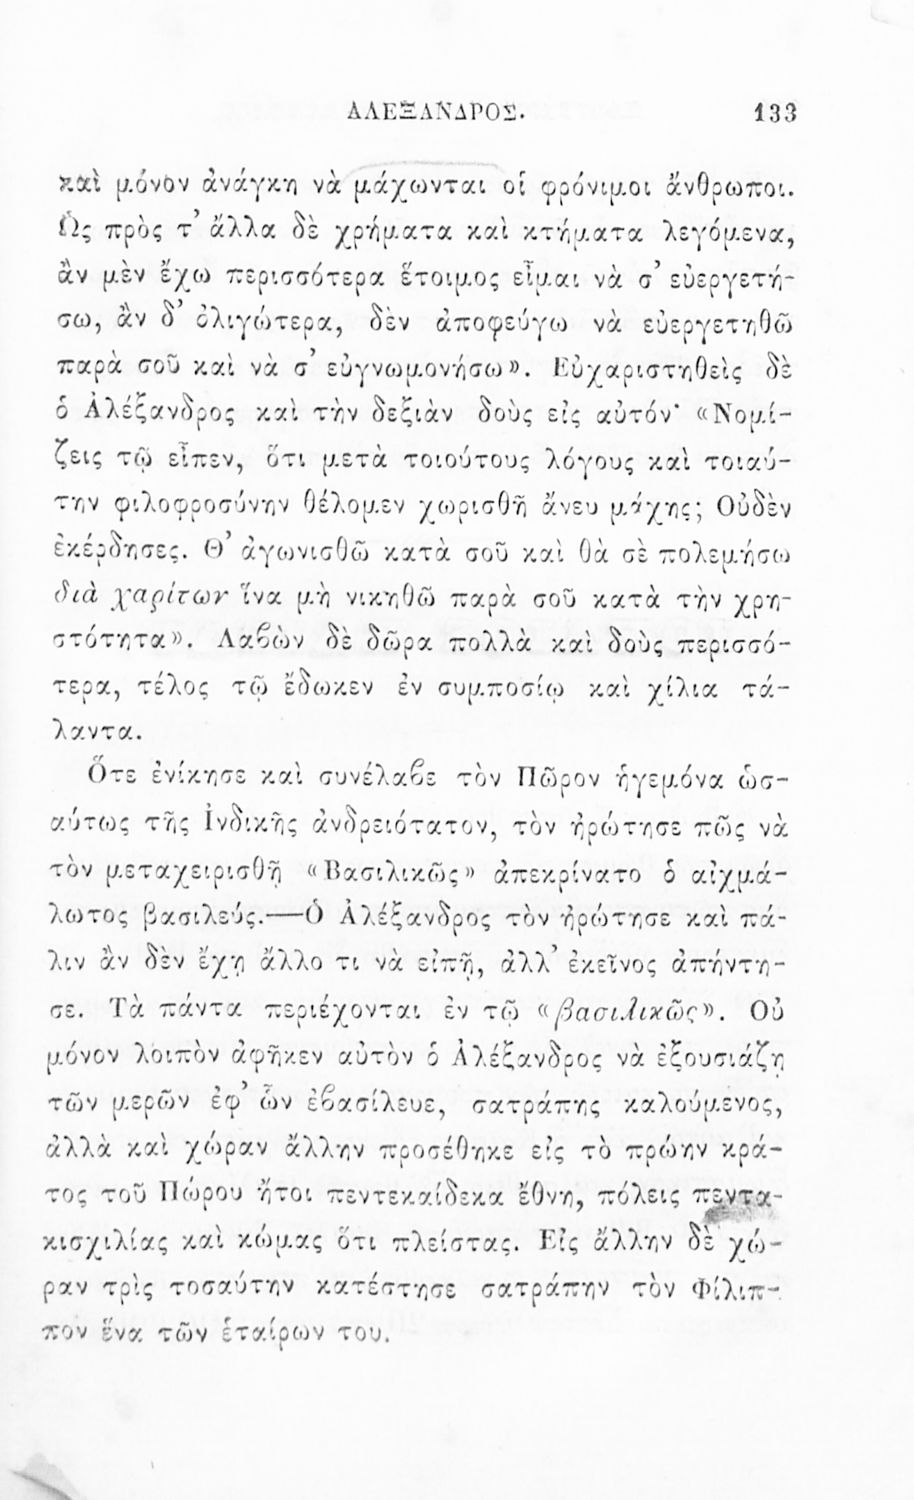 ΑΛΕΞΑΝΔΡΟΣ. 133
καὶ μόνον ἀνάγκη νὰ μάχωνται οἱ φρόνιμοι ἄνθρωποι.
Ὡς πρὸς τ᾽ ἄλλα δὲ χρήματα καὶ κτήματα λεγόμενα,
ἂν μὲν ἔχω περισσότερα ἕτοιμος εἶμαι νὰ σ᾽ εὐεργετή-
σω, ἂν δ᾽ ὀλιγώτερα, δὲν ἀποφεύγω νὰ εὐεργετηθῶ
παρὰ σοῦ καὶ νὰ σ᾽ εὐγνωμονήσω». Εὐχαριστηθεὶς δὲ
ὁ Ἀλέξανδρος καὶ τὴν δεξιὰν δοὺς εἰς αὐτόν· «Νομί-
ζεις τῷ εἶπεν, ὅτι μετὰ τοιούτους λόγους καὶ τοιαύ-
την φιλοφροσύνην θέλομεν χωρισθῆ ἄνευ μάχης; Οὐδὲν
ἐκέρδησες. Θ᾽ ἀγωνισθῶ κατὰ σοῦ καὶ θὰ σὲ πολεμήσω
διὰ χαρίτων ἵνα μὴ νικηθῶ παρὰ σοῦ κατὰ τὴν χρη-
στότητα». Λαβὼν δὲ δῶρα πολλὰ καὶ δοὺς περισσό-
τερα, τέλος τῷ ἔδωκεν ἐν συμποσίῳ καὶ χίλια τά-
λαντα.
Ὅτε ἐνίκησε καὶ συνέλαβε τὸν Πῶρον ἡγεμόνα ὡσ-
αύτως τῆς Ἰνδικῆς ἀνδρειότατον, τὸν ἠρώτησε πῶς νὰ
τὸν μεταχειρισθῇ «Βασιλικῶς» ἀπεκρίνατο ὁ αἰχμά-
λωτος βασιλεύς.—Ὁ Ἀλέξανδρος τὸν ἠρώτησε καὶ πά-
λιν ἂν δὲν ἔχῃ ἄλλο τι νὰ εἰπῇ, ἀλλ᾽ ἐκεῖνος ἀπήντη-
σε. Τὰ πάντα περιέχονται ἐν τῷ «βασιλικῶς». Οὐ
μόνον λοιπὸν ἀφῆκεν αὐτὸν ὁ Ἀλέξανδρος νὰ ἐξουσιάζῃ
τῶν μερῶν ἐφ᾽ ὧν ἐβασίλευε, σατράπης καλούμενος,
ἀλλὰ καὶ χώραν ἄλλην προσέθηκε εἰς τὸ πρώην κρά-
τος τοῦ Πώρου ἤτοι πεντεκαίδεκα ἔθνη, πόλεις πεντα-
κισχιλίας καὶ κώμας ὅτι πλείστας. Εἰς ἄλλην δὲ χώ-
ραν τρὶς τοσαύτην κατέστησε σατράπην τὸν Φίλιπ-
πον ἕνα τῶν ἑταίρων του.